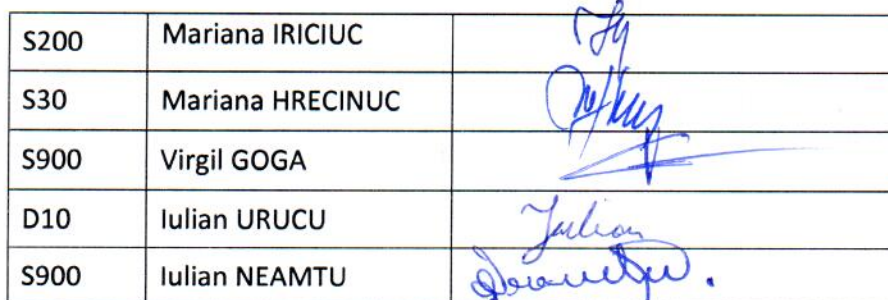 S200 Mariana IRICIUC
S30 Mariana HRECINUC
S900 Virgil GOGA
D10 Iulian URUCU Iulian
S900 Iulian NEAMTU